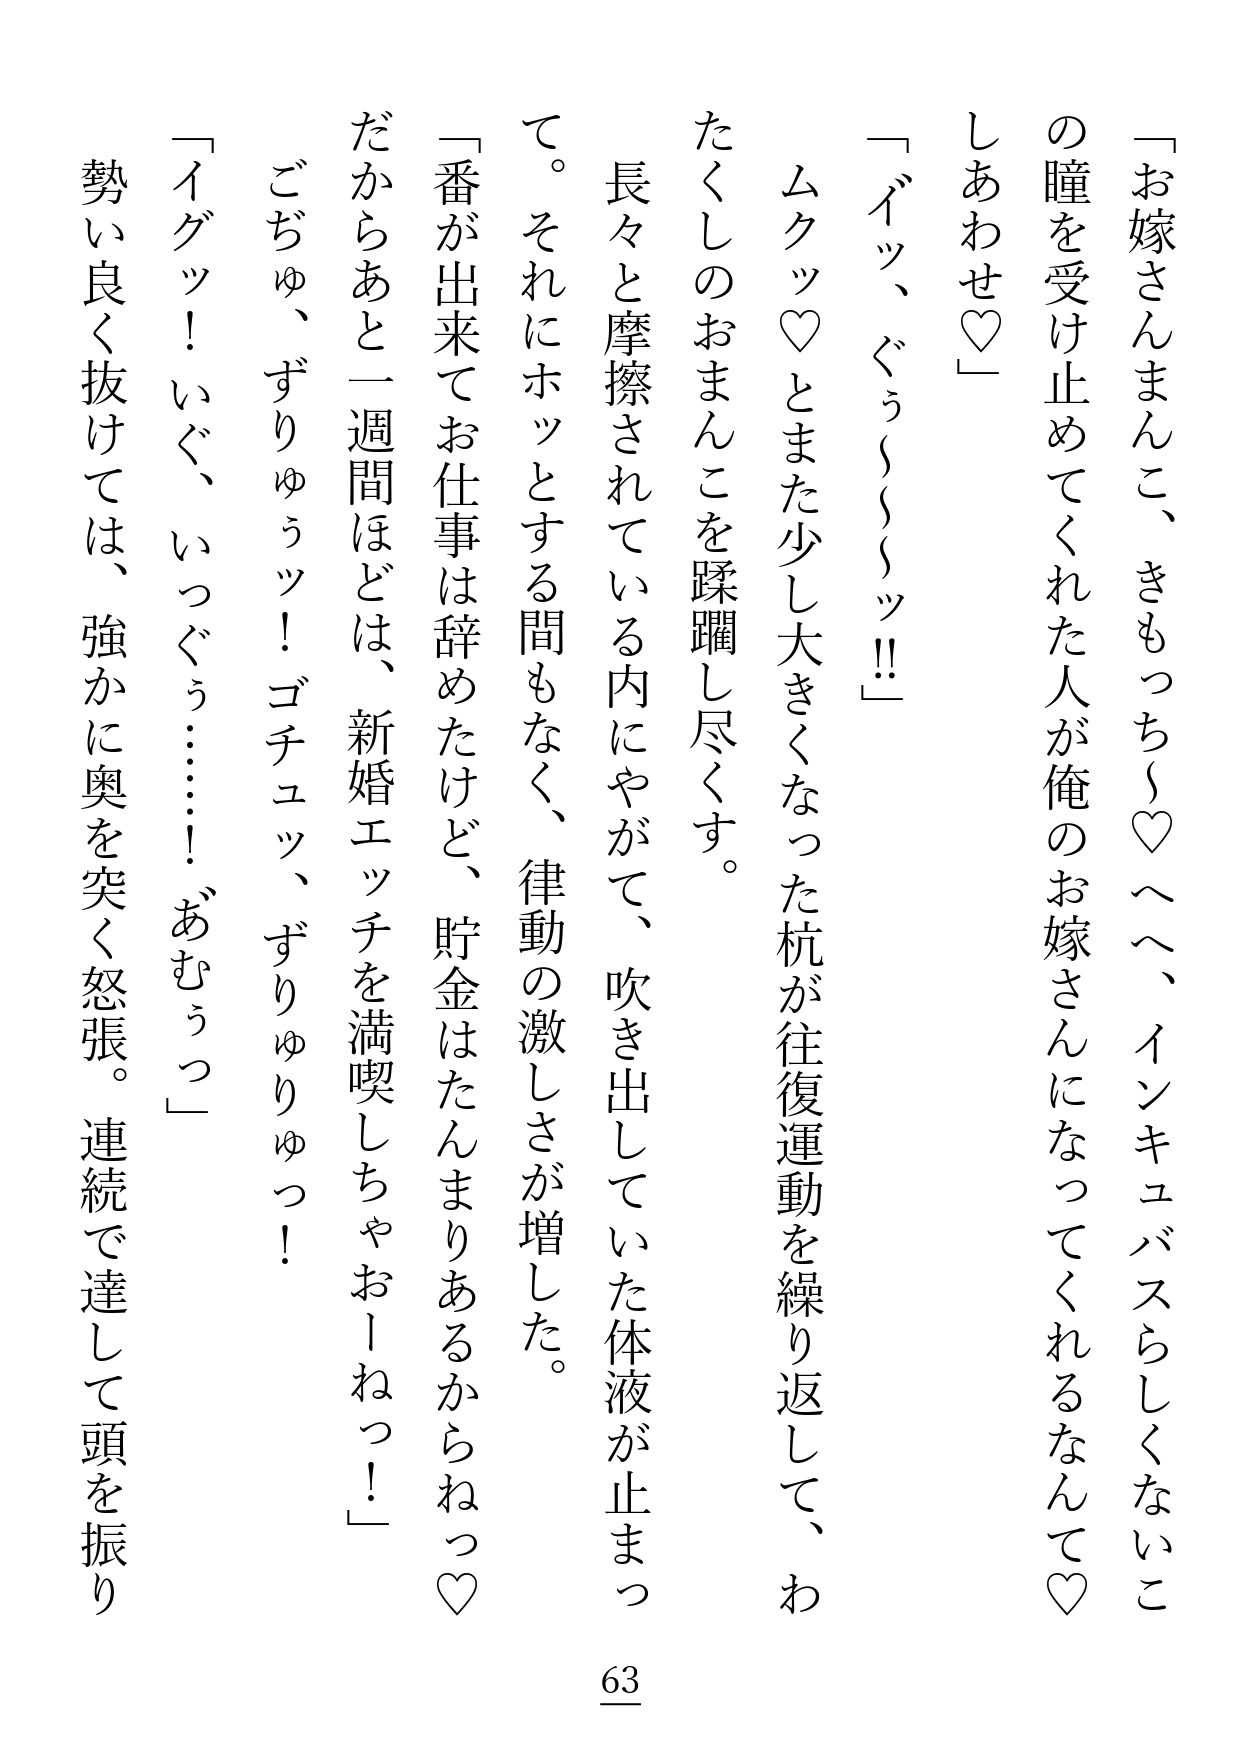 「お嫁さんまんこ、きもっち～♡へへ、インキュバスらしくないこ
の瞳を受け止めてくれた人が俺のお嫁さんになってくれるなんて♡
しあわせ♡」
「イ゛ッ、ぐぅ～～～ッ!!」
　ムクッ♡とまた少し大きくなった杭が往復運動を繰り返して、わ
たくしのおまんこを蹂躙し尽くす。
　長々と摩擦されている内にやがて、吹き出していた体液が止まっ
て。それにホッとする間もなく、律動の激しさが増した。
「番が出来てお仕事は辞めたけど、貯金はたんまりあるからねっ♡
だからあと一週間ほどは、新婚エッチを満喫しちゃおーねっ！」
　ごぢゅ、ずりゅぅッ！ゴチュッ、ずりゅりゅっ！
「イグッ！いぐ、いっぐぅ……！あ゛むぅっ」
　勢い良く抜けては、強かに奥を突く怒張。連続で達して頭を振り
63